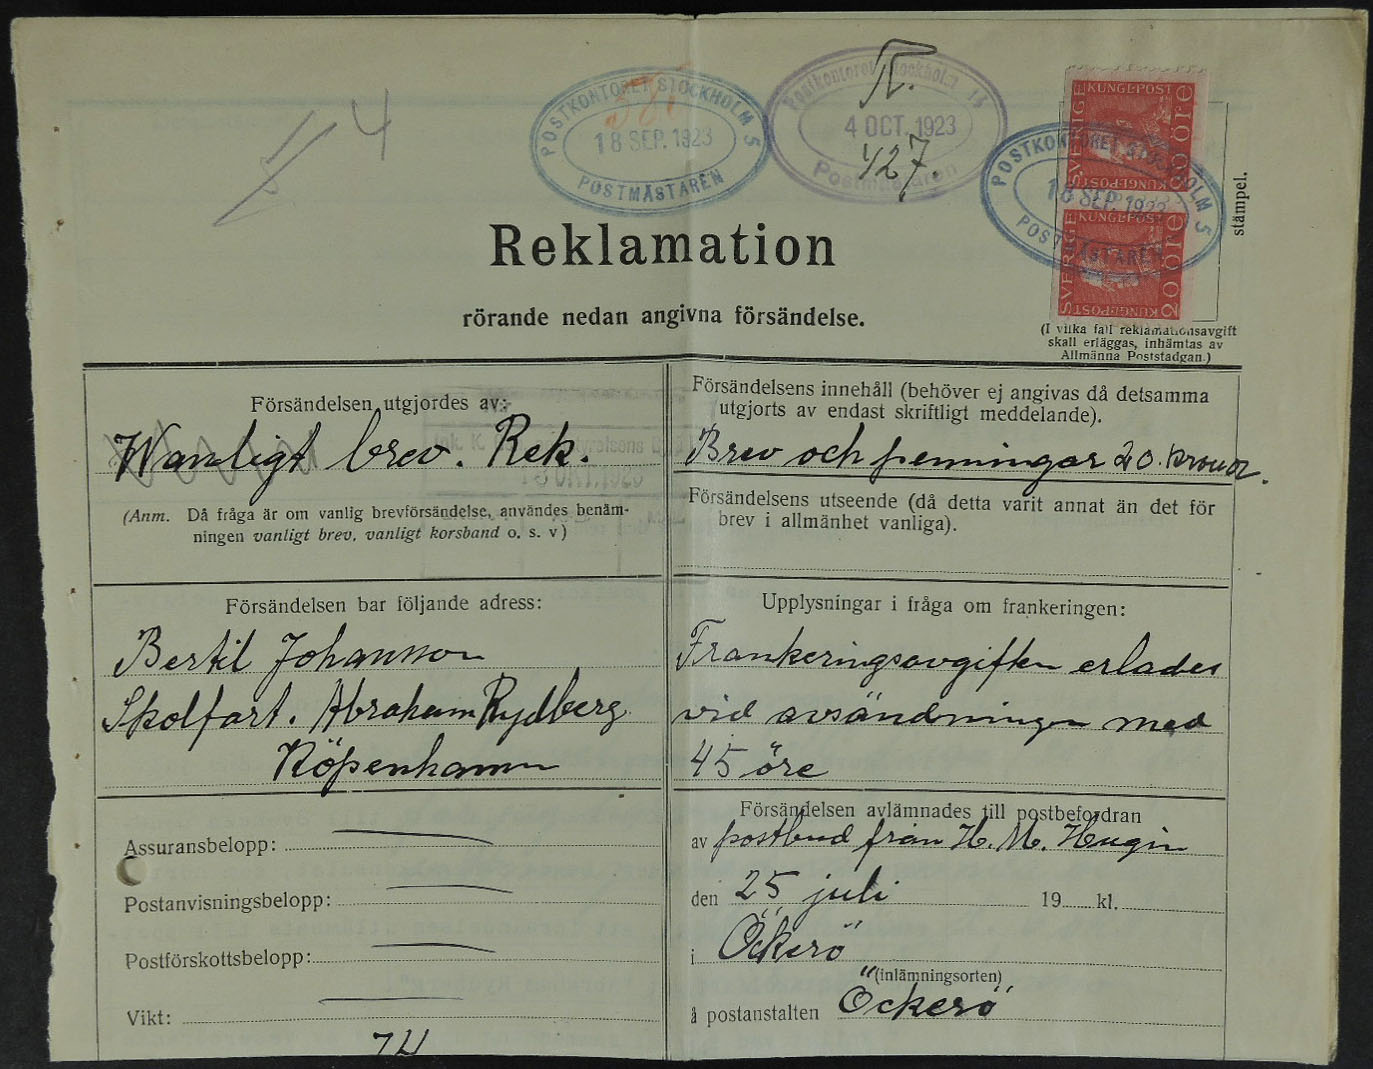 4
POSTKONTORET STOCKHOLM 5
18 SEP. 1923
POSTMÄSTAREN
Postkontoret Stockholm 15
4 OCT. 1923
Postmästaren
427.
SVERIGE KUNGL·POST 20 ÖRE
KUNGL·POST
SVERIGE KUNGL·POST 20 ÖRE
KUNGL·POST
POSTKONTORET STOCKHOLM 5
18 SEP. 1923
POSTMÄSTAREN
stämpel.
Reklamation
rörande nedan angivna försändelse.
(I vilka fall reklamationsavgift
skall erläggas, inhämtas av
Allmänna Poststadgan.)
Försändelsen utgjordes av:
Wanligt brev. Rek.
(Anm. Då fråga är om vanlig brevförsändelse, användes benäm-
ningen vanligt brev, vanligt korsband o. s. v)
Försändelsens innehåll (behöver ej angivas då detsamma
utgjorts av endast skriftligt meddelande).
Brev och penningar 20. kronor.
Försändelsens utseende (då detta varit annat än det för
brev i allmänhet vanliga).
Försändelsen bar följande adress:
Bertil Johansson
Skolfart. Abraham Rydberg
Köpenhamn
Upplysningar i fråga om frankeringen:
Frankeringsavgiften erlades
vid avsändningen med
45 öre
Assuransbelopp:
Postanvisningsbelopp:
Postförskottsbelopp:
Vikt:
Försändelsen avlämnades till postbefordran
av postbud från H. M. Hugin
den 25 juli 19 kl.
i Öckerö
(inlämningsorten)
å postanstalten Öckerö